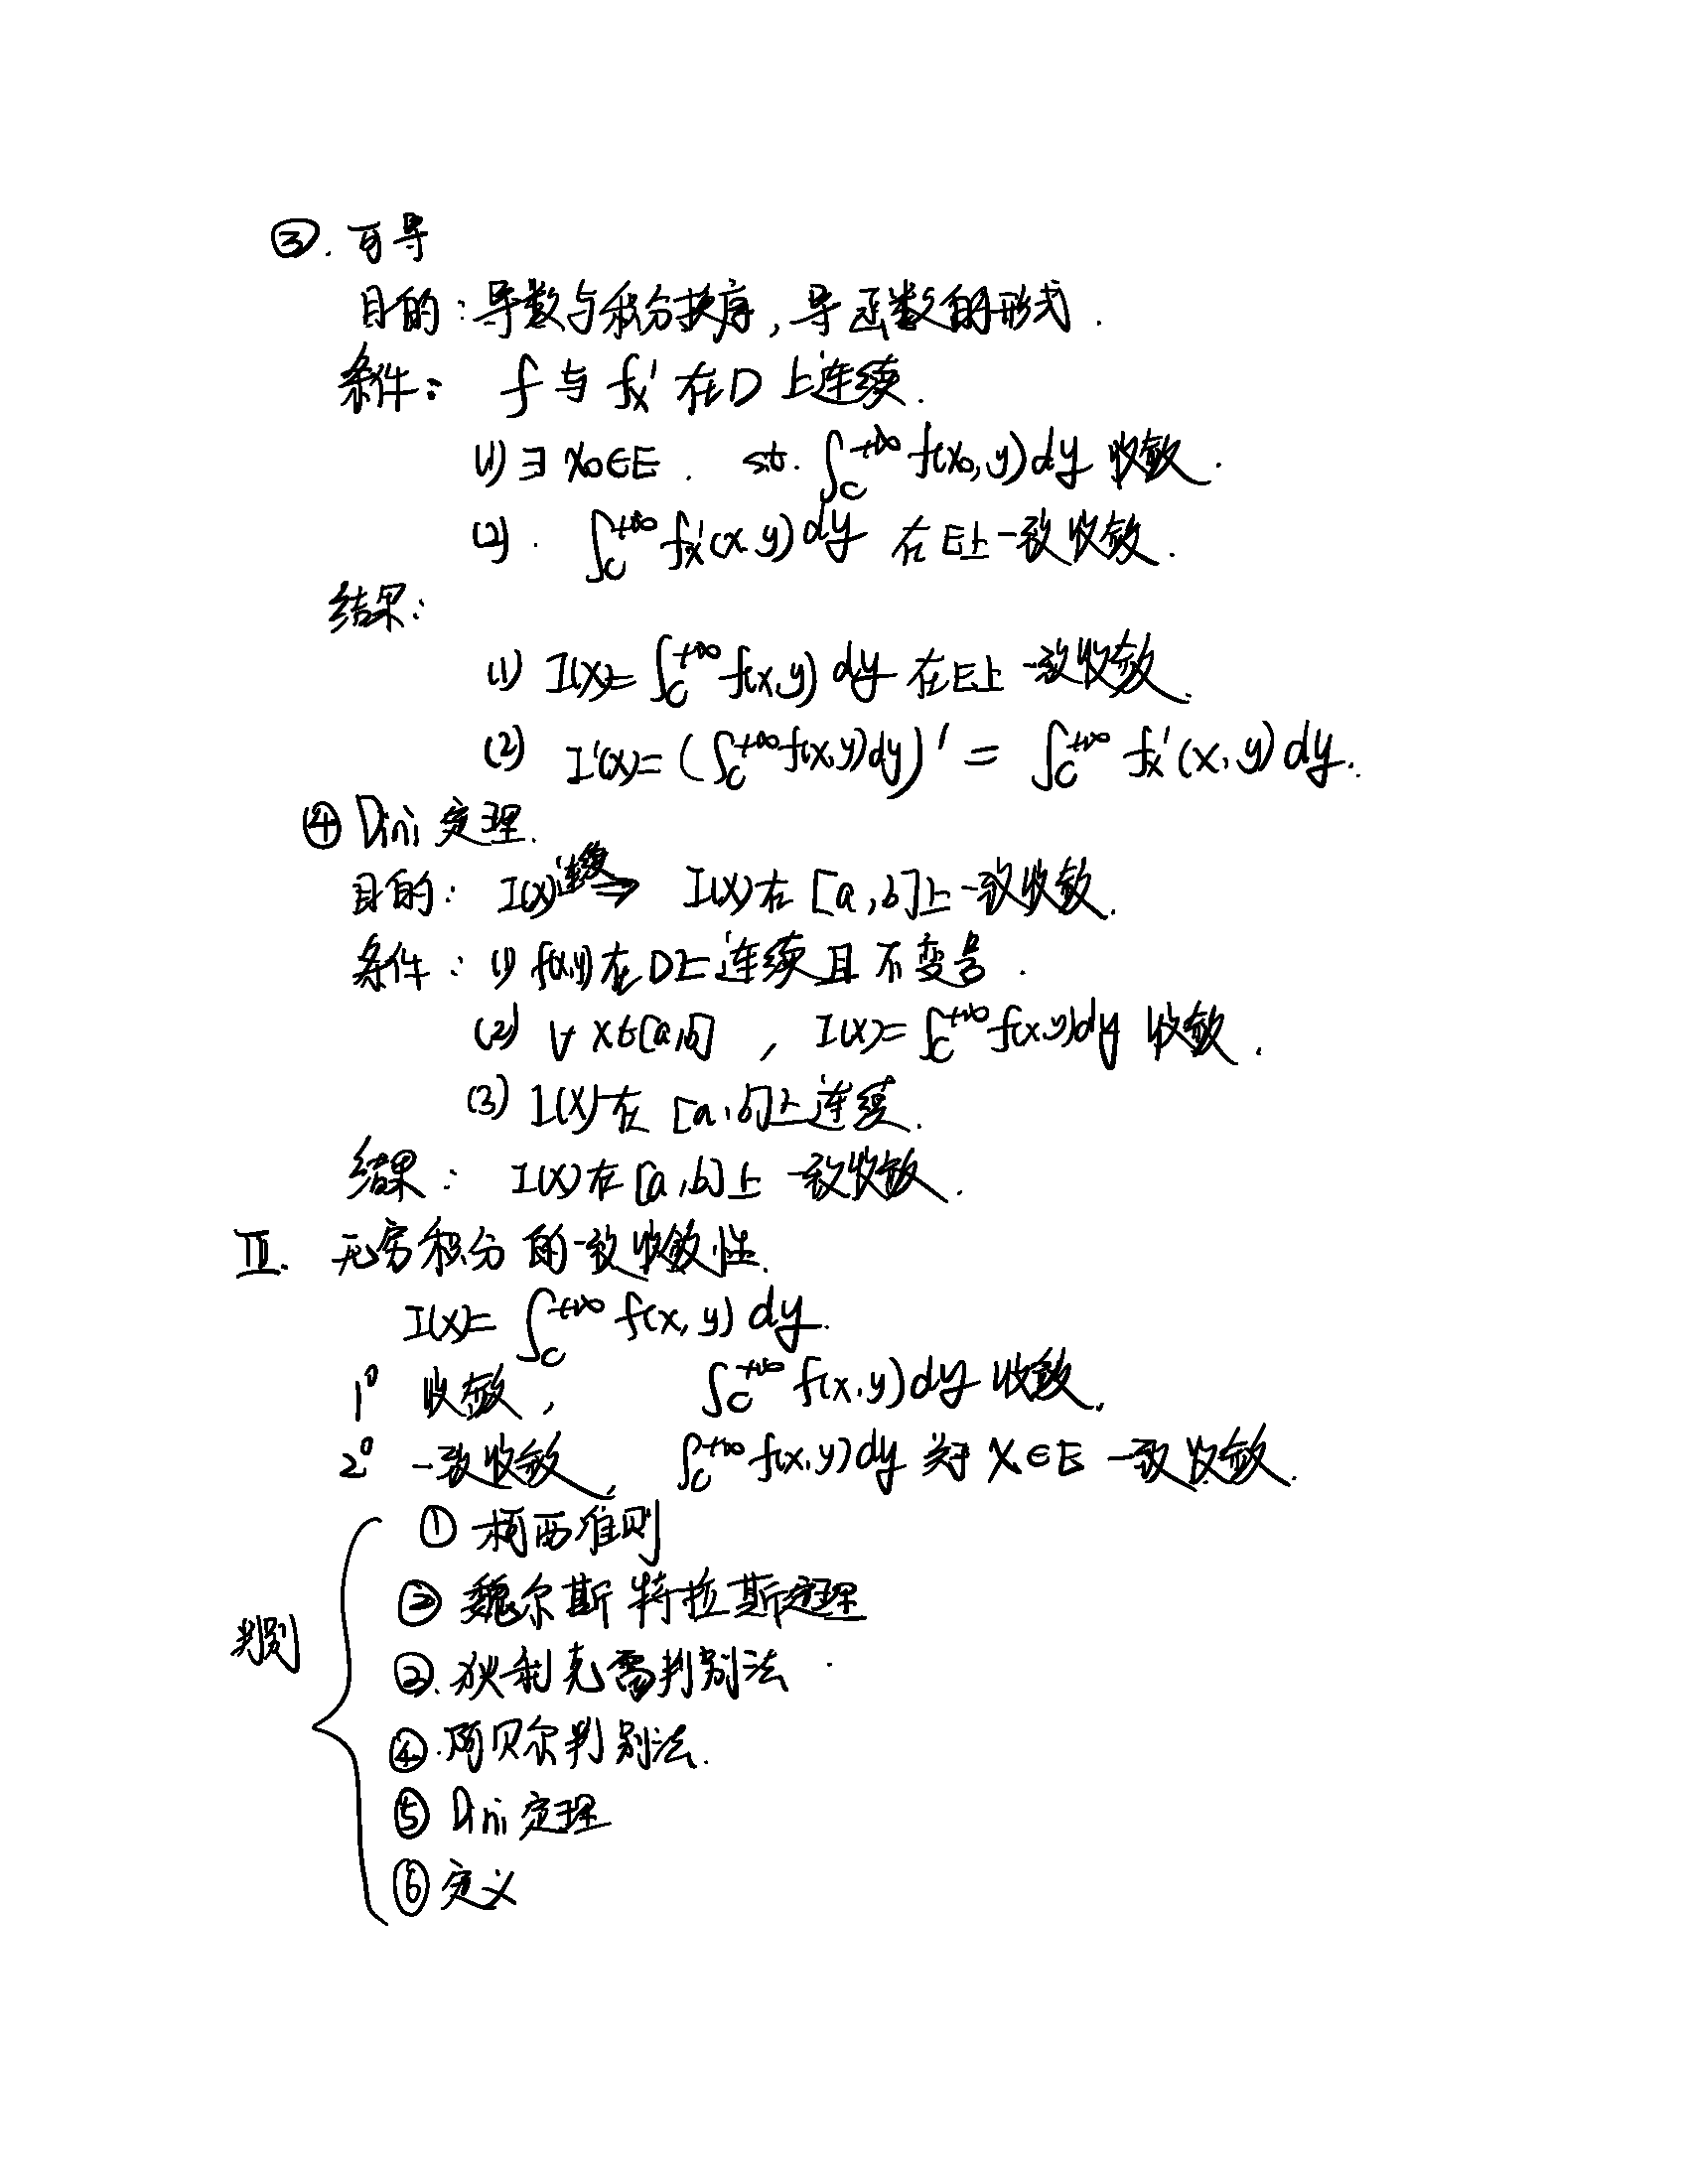 ③. 可导
目的：导数与积分换序，导函数的形式.
条件： f 与 fx' 在 D 上连续.
(1) ∃ x₀∈E. st. ∫_c^{+∞} f(x₀,y)dy 收敛.
(2). ∫_c^{+∞} fx'(x,y)dy 在E上一致收敛.
结果：
(1) I(x)=∫_c^{+∞} f(x,y) dy 在E上 一致收敛.
(2) I'(x)=(∫_c^{+∞} f(x,y)dy)' = ∫_c^{+∞} fx'(x,y)dy.
④ Dini 定理.
目的： I(x) 连续⇒ I(x)在 [a,b]上一致收敛.
条件：(1) f(x,y)在D上连续且不变号.
(2) ∀ x∈[a,b] ， I(x)=∫_c^{+∞} f(x,y)dy 收敛.
(3) I(x)在 [a,b]上连续.
结果： I(x)在[a,b]上 一致收敛.
Ⅲ. 无穷积分的一致收敛性.
I(x)=∫_c^{+∞} f(x,y) dy.
1⁰ 收敛， ∫_c^{+∞} f(x,y)dy 收敛.
2⁰ 一致收敛， ∫_c^{+∞} f(x,y)dy 关于 x∈E 一致收敛.
判别
① 柯西准则
② 魏尔斯特拉斯定理
③. 狄利克雷判别法.
④. 阿贝尔判别法.
⑤ Dini 定理
⑥ 定义